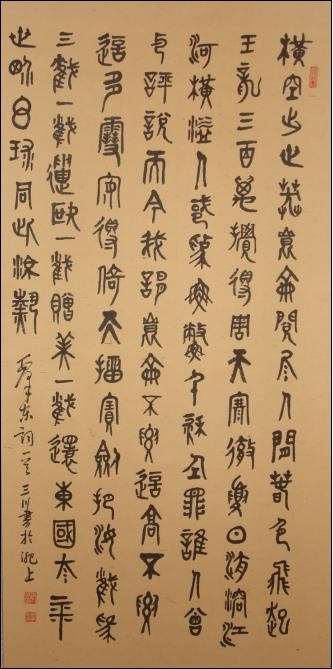 橫空出世莽崑侖閱尽人間春色飛起
玉龍三百萬攪得周天寒徹夏日消溶江
河橫溢人或為魚鱉千秋功罪誰人曾
與評說而今我謂崑侖不要這高不要
這多雪安得倚天抽寶劍把汝截為
三截一截遺歐一截贈美一截還東國太平
世界球同此涼熱
毛澤東詞一首三川書於上